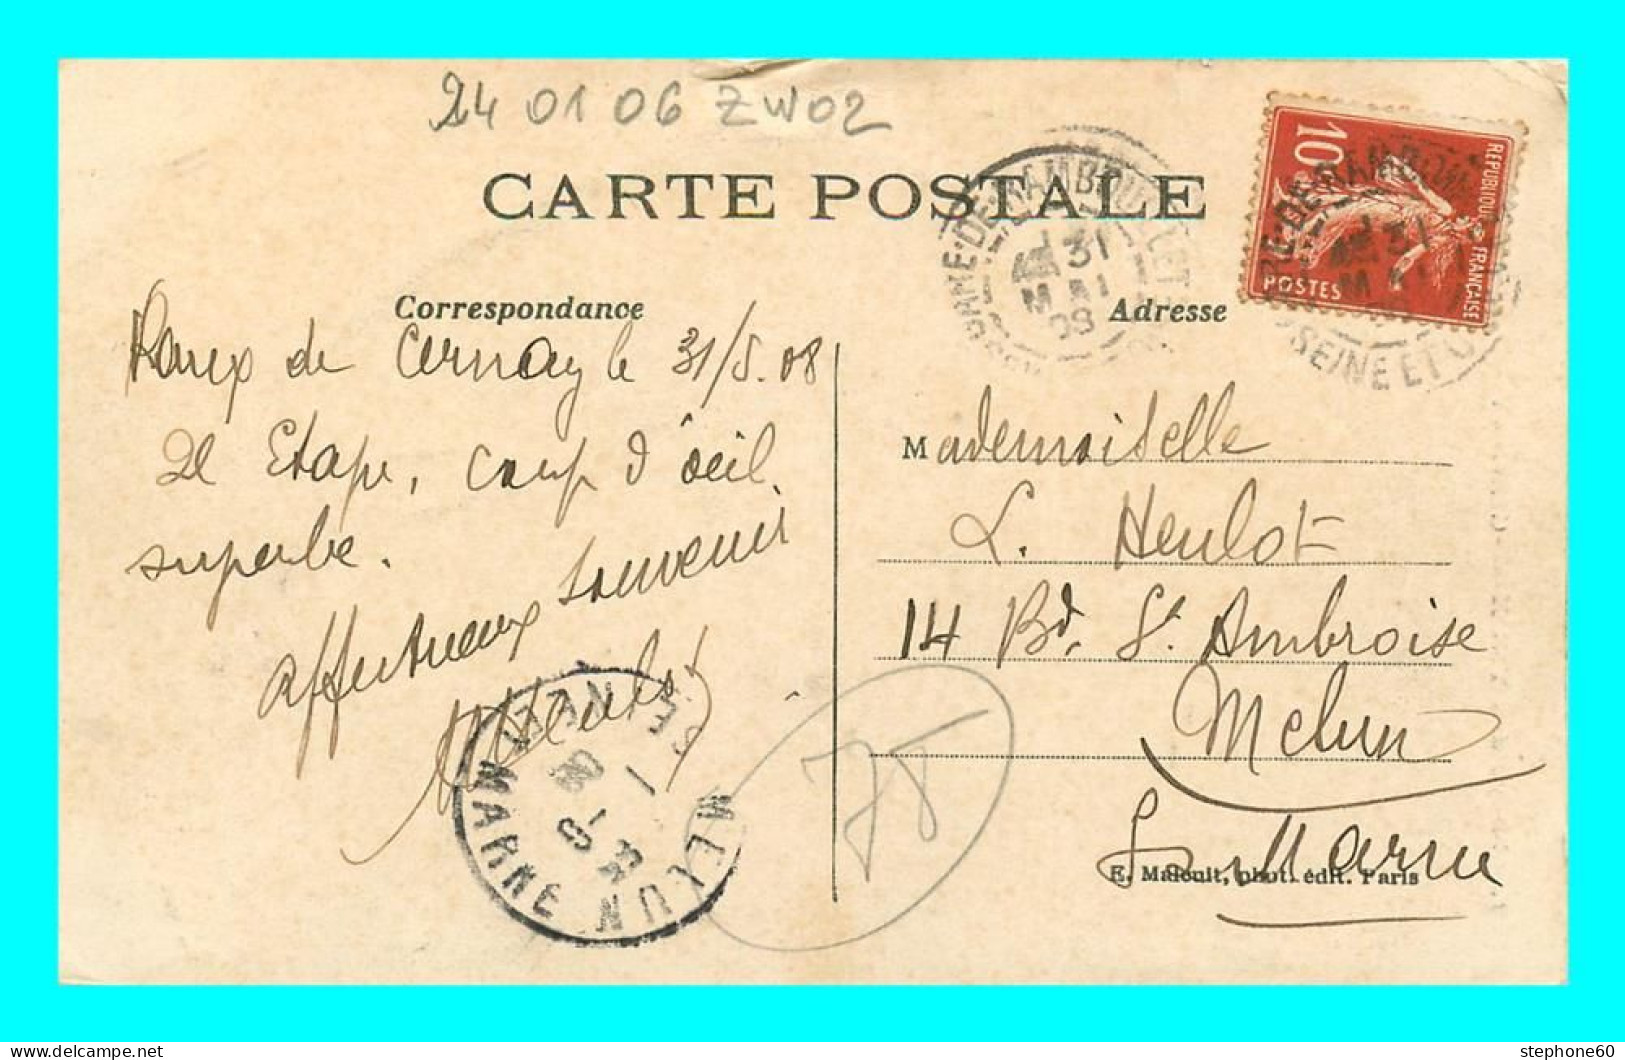 24 01 06 ZW02
CARTE POSTALE
Correspondance
Adresse
de Cernay le 31/5.08
2e Etape, coup d'oeil
superbe.
affectueux souvenir
Mademoiselle
L. Heulot
14 Bd. St Ambroise
Melun
S et Marne
E. Malcuit, phot. édit. Paris
10
REPUBLIQUE FRANÇAISE
POSTES
31
MAI
08
SEINE ET O
MELUN
SEINE ET MARNE
75
stephone60